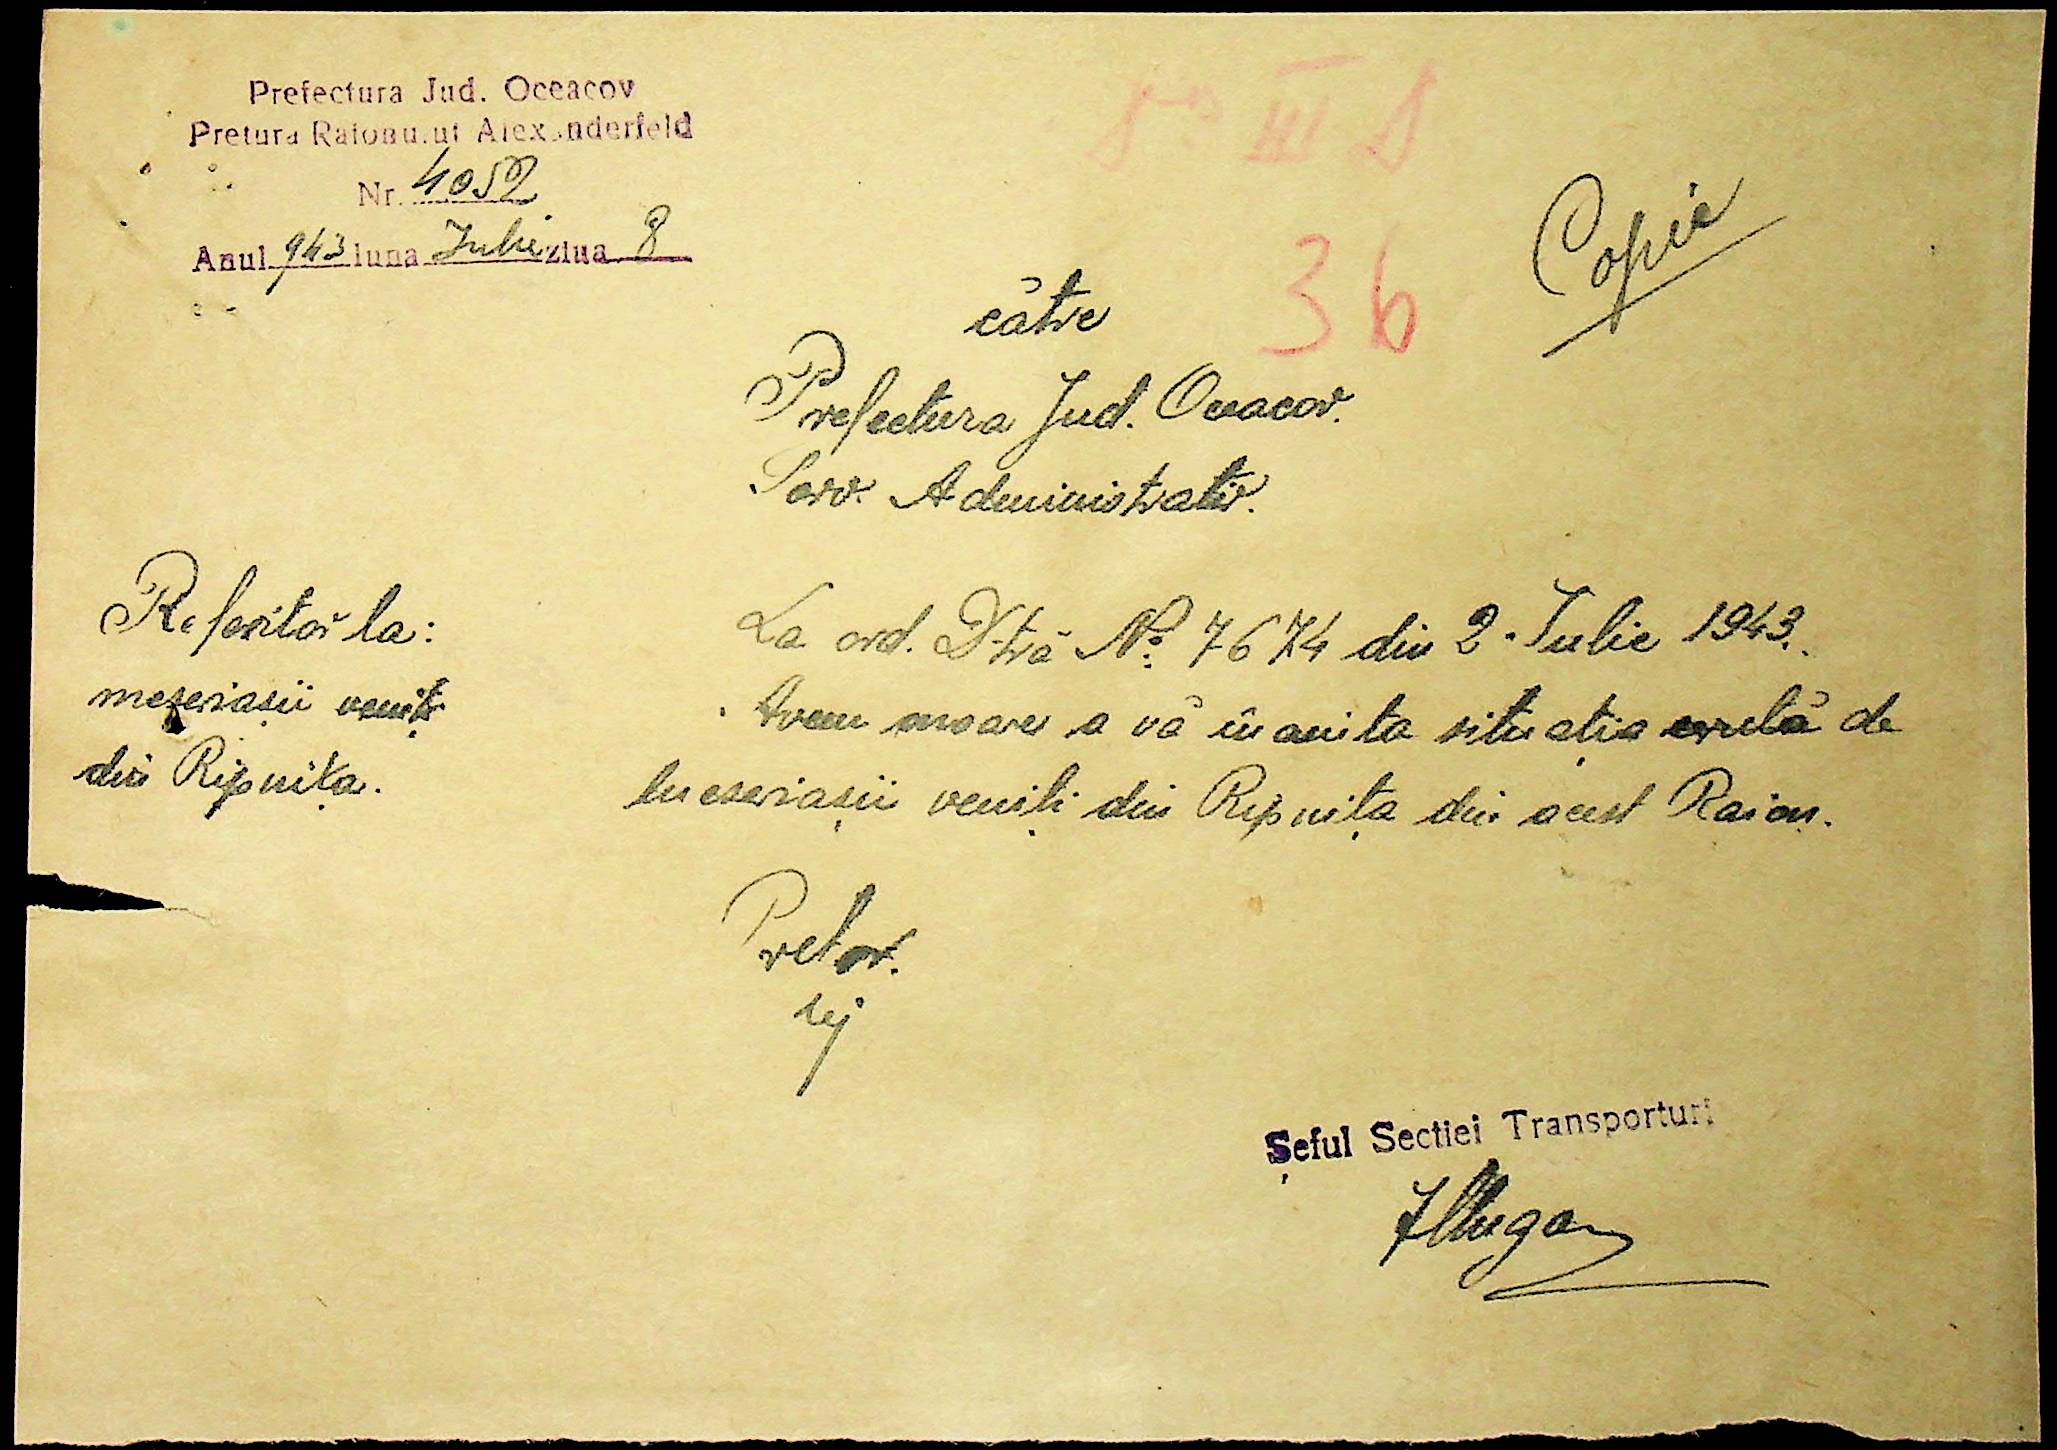 Prefectura Jud. Oceacov
Pretura Raionului Alexanderfeld
Nr. 4052
Anul 943 luna Iulie ziua 8
III
36
Copie
către
Prefectura Jud. Oceacov.
Serv. Administrativ.
Referitor la:
meseriașii veniți
din Rîpnița.
La ord. D-tră No. 7674 din 2. Iulie 1943.
Avem onoare a vă înainta situația cerută de
meseriașii veniți din Rîpnița din acest Raion.
Pretor.
Șeful Secției Transporturi